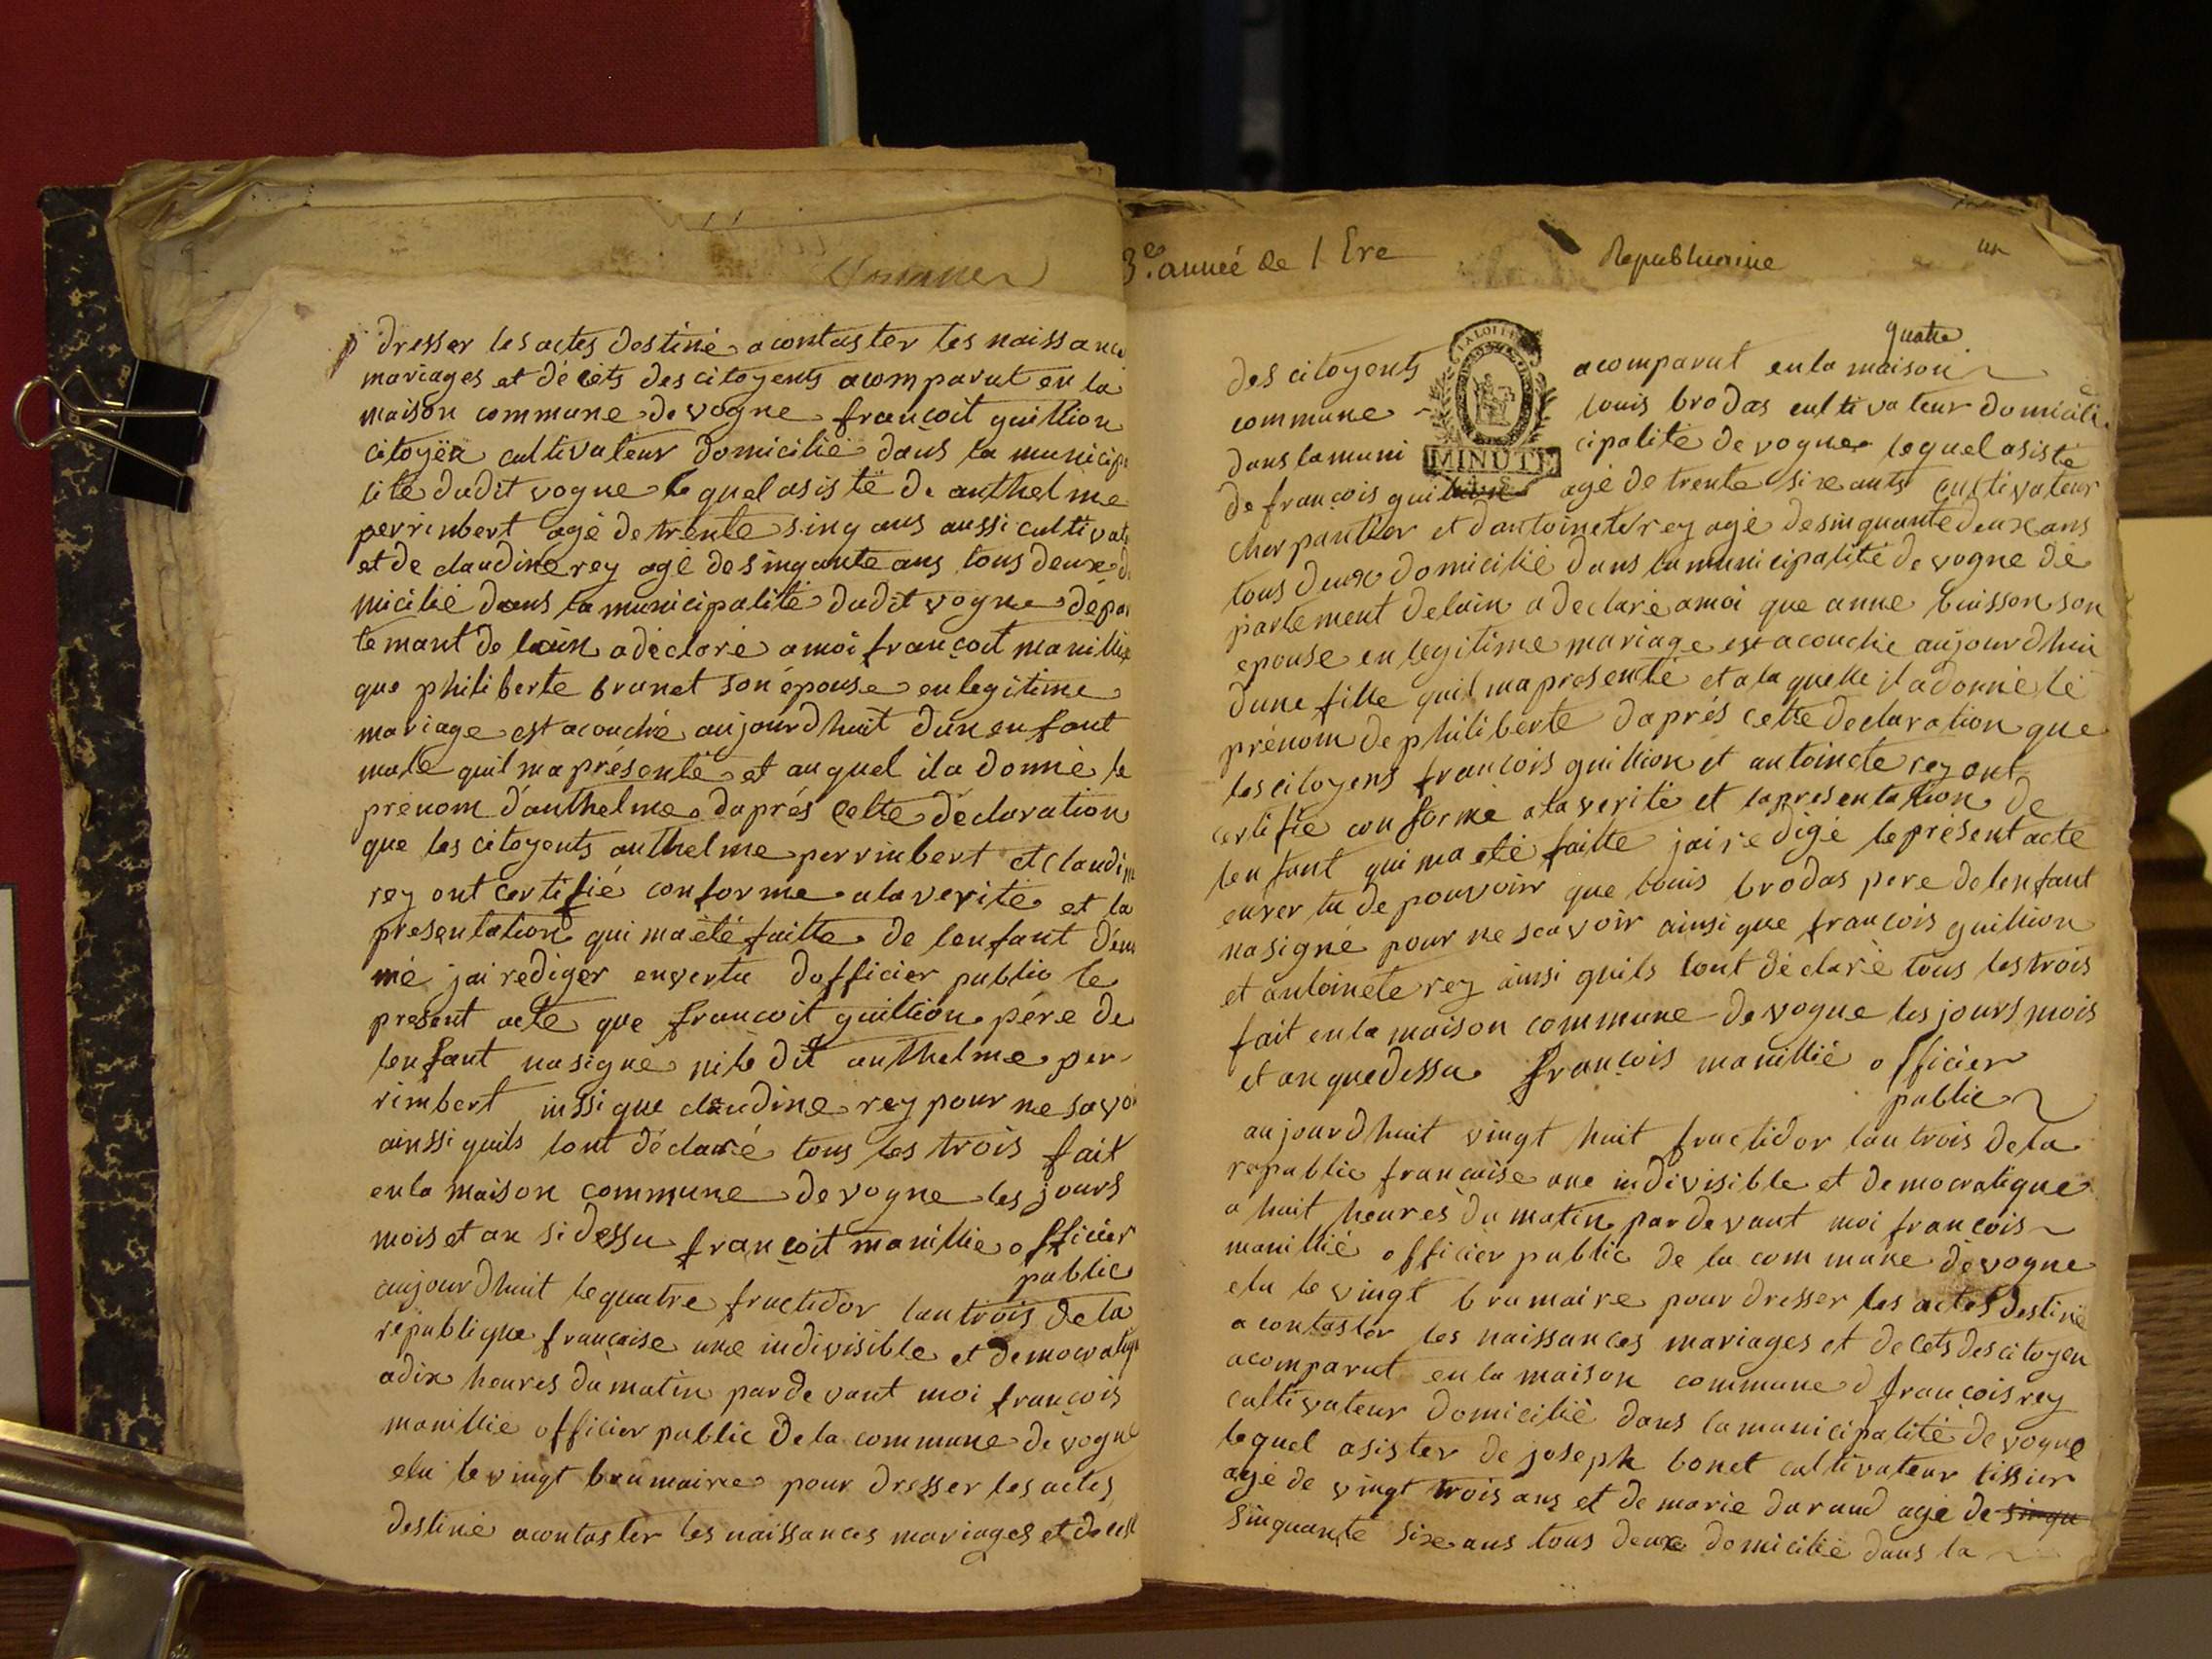 3e. année de l Ere Republicaine
p dresser les actes destiné a contaster les naissance
mariages et décèts des citoyents acomparut en la
maison commune de vogne françoit guillion
citoyën cultivateur domicilié dans la municip
lité dudit vogne lequel asisté de anthelme
perrinbert agé de trente sinq ans aussi cultivat
et de claudine rey agé de sinqante ans tous deux d
micilié dans la municipalité dudit vogne dépar
temant de lain a déclaré a moi françoit manillié
que philiberte brunet son épouse en legitime
mariage est acouché aujourdhuit dun enfant
male quil ma présenté et auquel il a donné le
prénom d'anthelme daprés cette déclaration
que les citoyents anthelme perrinbert et claudin
rey ont certifié conforme a la verité et la
presentation qui ma été faitte de lenfant dénu
mé jai rediger en vertu dofficier public le
present acte que francoit guillion père de
lenfant na signé ni le dit anthelme per-
rimbert inssi que claudine rey pour ne savo
ainssi quils lont déclaré tous les trois fait
en la maison commune de vogne les jours
mois et an si dessu françoit manillie officier
public
aujourdhuit le quatre fructidor lan trois de la
république francaise une indivisible et démocratiqu
a dix heures du matin par devant moi françois
manillié officier public de la commune de vogne
elu le vingt brumaire pour dresser les actes
destiné a contaster les naissances mariages et de cest
quatre
des citoyents MINUTE acomparut en la maison
commune louis brodas cultivateur domicili
dans la muni cipalité de vogne lequel asisté
de françois guillion agé de trente sixe ants cultivateur
cherpantier et dantoinete rey agé de sinquante deux ans
tous deux domicilié dans la municipalité de vogne dé
partement de lain a declaré a moi que anne buisson son
epouse en legitime mariage est acouchie aujourdhui
dune fille quil ma presenté et a la quelle il a donné le
prénom de philiberte daprés cette declaration que
les citoyens francois guillion et antoinete rey ont
certifié conforme a la verité et la presentation de
lenfant qui ma eté faitte jai redigé le présent acte
en vertu de pouvoir que louis brodas pere de lenfant
na signé pour ne scavoir ainsi que françois guillion
et antoinete rey ainsi quils lont déclaré tous les trois
fait en la maison commune de vogne les jours mois
et an que dessu françois manillié officier
public
aujourdhuit vingt huit fructidor lan trois de la
republic francaise une indivisible et democratique
a huit heures du matin par devant moi françois
manillié officier public de la commune de vogne
elu le vingt brumaire pour dresser les actes destiné
a contaster les naissances mariages et decets des citoyen
acomparut en la maison commune d françois rey
cultivateur domicilié dans la municipalité de vogne
lequel asister de joseph bonet cultivateur tissier
agé de vingt trois ans et de marie durand agé de sinqu
sinquante sixe ans tous deux domicilié dans la